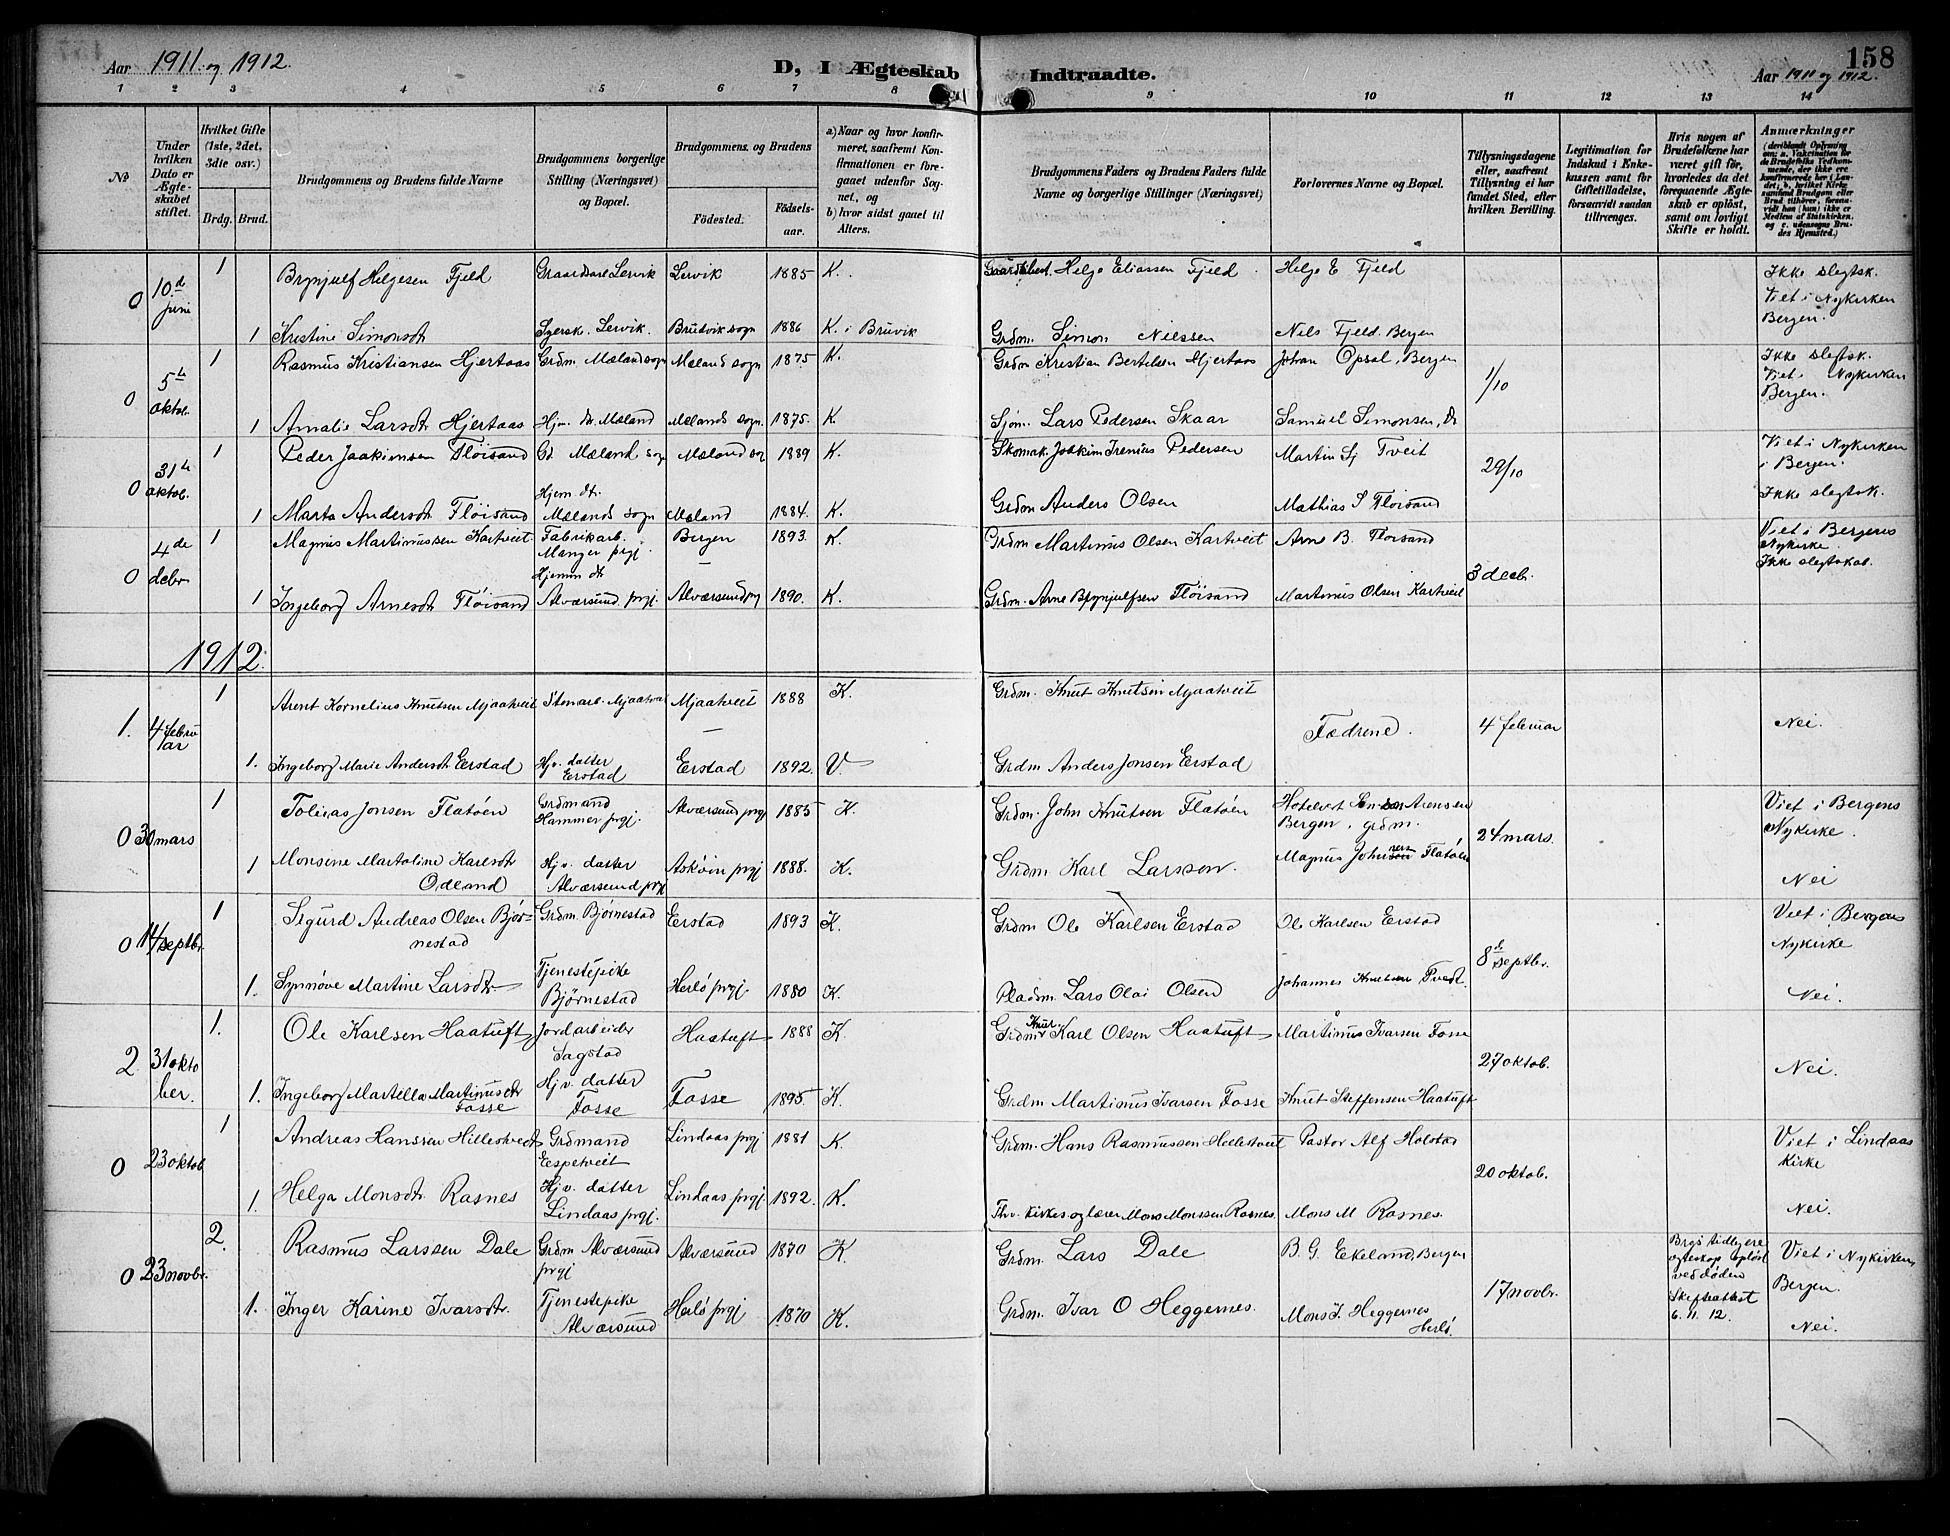 158
Aar 1911 og 1912.
D, I Ægteskab Indtraadte.
Aar 1911 og 1912.
1 2 3 4 5 6 7 8 9 10 11 12 13 14
No
Under hvilken Dato er Ægteskabet stiftet.
Hvilket Gifte (1ste, 2det, 3die osv.)
Brdg. Brud.
Brudgommens og Brudens fulde Navne
Brudgommens borgerlige Stilling (Næringsvei) og Bopæl.
Brudgommens og Brudens
Fødested.
Fødselsaar.
a) Naar og hvor konfirmeret, saafremt Konfirmationen er foregaaet udenfor Sognet, og
b) hvor sidst gaaet til Alters.
Brudgommens Faders og Brudens Faders fulde Navne og borgerlige Stillinger (Næringsvei)
Forlovernes Navne og Bopæl.
Tillysningsdagene eller, saafremt Tillysning ei har fundet Sted, efter hvilken Bevilling.
Legitimation for Indskud i Enkekassen samt for Giftetilladelse, forsaavidt saadan tiltrænges.
Hvis nogen af Brudefolkene har været gift før, hvorledes da det foregaaende Ægteskab er opløst, samt om lovligt Skifte er holdt.
Anmærkninger
0 10.d juni 1 Brynjulf Helgesen Fjeld Lervik Lervik 1885 K. Helge Eliassen Fjeld Helge E Fjeld Ikke slegtsk. Viet i Nykirken Bergen.
1 Kristine Simonsdt Lervik. Brutvik sogn 1886 K. i Bruvik Grdm. Simon Nielssen Nils Fjeld. Bergen
0 5te oktob. 1 Rasmus Kristiansen Hjertaas Grdm. Mæland sogn Mæland sogn 1875 K. Grdm Kristian Bertelsen Hjertaas Johan Opsal, Bergen 1/10 Ikke slegtsk. Viet i Nykirken Bergen.
1 Amalie Larsdt Hjertaas Hjv. dt. Mæland Mælands sogn. 1875. K. Sjøm. Lars Pedersen Skaar Samuel Simonsen, Do
0 31te oktob. 1 Peder Joakimsen Fløisand Gd. Mæland sogn Mæland sog 1889 K. Skomak. Joakim Irenius Pedersen Martin Sj Tveit 29/10 Viet i Nykirken i Bergen.
1 Marta Andersdt Fløisand Hjem. dt. Mælands sogn Mæland 1884. K. Grdm Anders Olsen Mathias S Fløisand Ikke slegtsk.
0 4de debr 1 Magnus Martinussen Kartveit Fabrikarb. Manger prgj. Bergen 1893. K. Grdm Martinus Olsen Kartveit Arne B. Floisand 3 decb. Viet i Bergens Nykirke. Ikke slegtskab.
1 Ingeborg Arnesdt Fløisand Hjemm dt Alværsund prgj. Alværsund prgj 1890. K. Grdm. Arne Brynjulfsen Fløisand Martinus Olsen Kartveit
1912.
1. 4 februar 1 Arent Kornelius Knutsen Mjaatveit Stenarb. Mjaatveit Mjaatveit 1888 K. Grdm. Knut Knutsen Mjaatveit Fædrene. 4 februar Nei.
1. Ingeborg Marie Andersdt Eerstad Hjv. datter Eerstad Eerstad 1892. V. Grdm Anders Jonsen Eerstad
0 30 mars 1 Tolleias Jonsen Flatøen Grdmand Hammer prgj. Alværsund prgj 1885 K. Grdm. John Knutsen Flatøen Arensen Bergen, grdm. 24 mars. Viet i Bergens Nykirke.
1 Monsine Martoline Karlsdt Odland Hjv. datter Alværsund prgj Askøin prgj 1888. K. Grdm Karl Larsson. Magnus Johnsen Flatøen Nei
0 14 septbr. 1 Sigurd Andreas Olsen Bjørnestad Grdm. Bjørnestad Eerstad 1893 K. Grdm Ole Karlsen Eerstad Ole Karlsen Eerstad 8de septbr. Viet i Bergens Nykirke
1. Synnøve Martine Larsdt Tjenestepike Bjørnestad Herlø prgj. 1880 K. Pladsm. Lars Olai Olsen Johannes Knutsen Tvedt. Nei.
2. 31 oktober. 1. Ole Karlsen Haatuft Jordarbeider Sagstad Haatuft 1888 K. Grdm. Knut Karl Olsen Haatuft Martinus Ivarsen Fosse 27 oktob. Nei.
1. Ingeborg Martella Martinusdt Fosse Hjv. datter Fosse Fosse 1895 K. Grdm Martinus Ivarsen Fosse Knut Steffensen Haatuft
0 23 oktob 1 Andreas Hanssen Hillestvedt Grdmand Eespetveit Lindaas prgj 1881 K. Grdm. Hans Rasmussen Hellestveit Pastor Alf Holstad 20 oktob. Viet i Lindaas Kirke
1. Helga Monsdt. Rasnes Hjv. datter Lindaas prgj. Lindaas prgj. 1892. K. Thv. kirkesoglærer Mons Monssen Rasnes. Mons M Rasnes. Nei.
0 23 novbr. 2. Rasmus Larssen Dale Grdm Alværsund prgj Alværsund 1870 K. Grdm. Lars Dale B. G. Ekeland, Bergen 17 novbr. Brgs tidligere egteskap opløst ved døden Skifteattest 6. 11. 12. Viet i Nykirken, Bergen.
1. Inger Karine Ivarsdt. Tjenestepike Alværsund Herlø prgj 1870 K. Grdm. Ivar O Heggernes. Mons I. Heggernes Herlø. Nei.